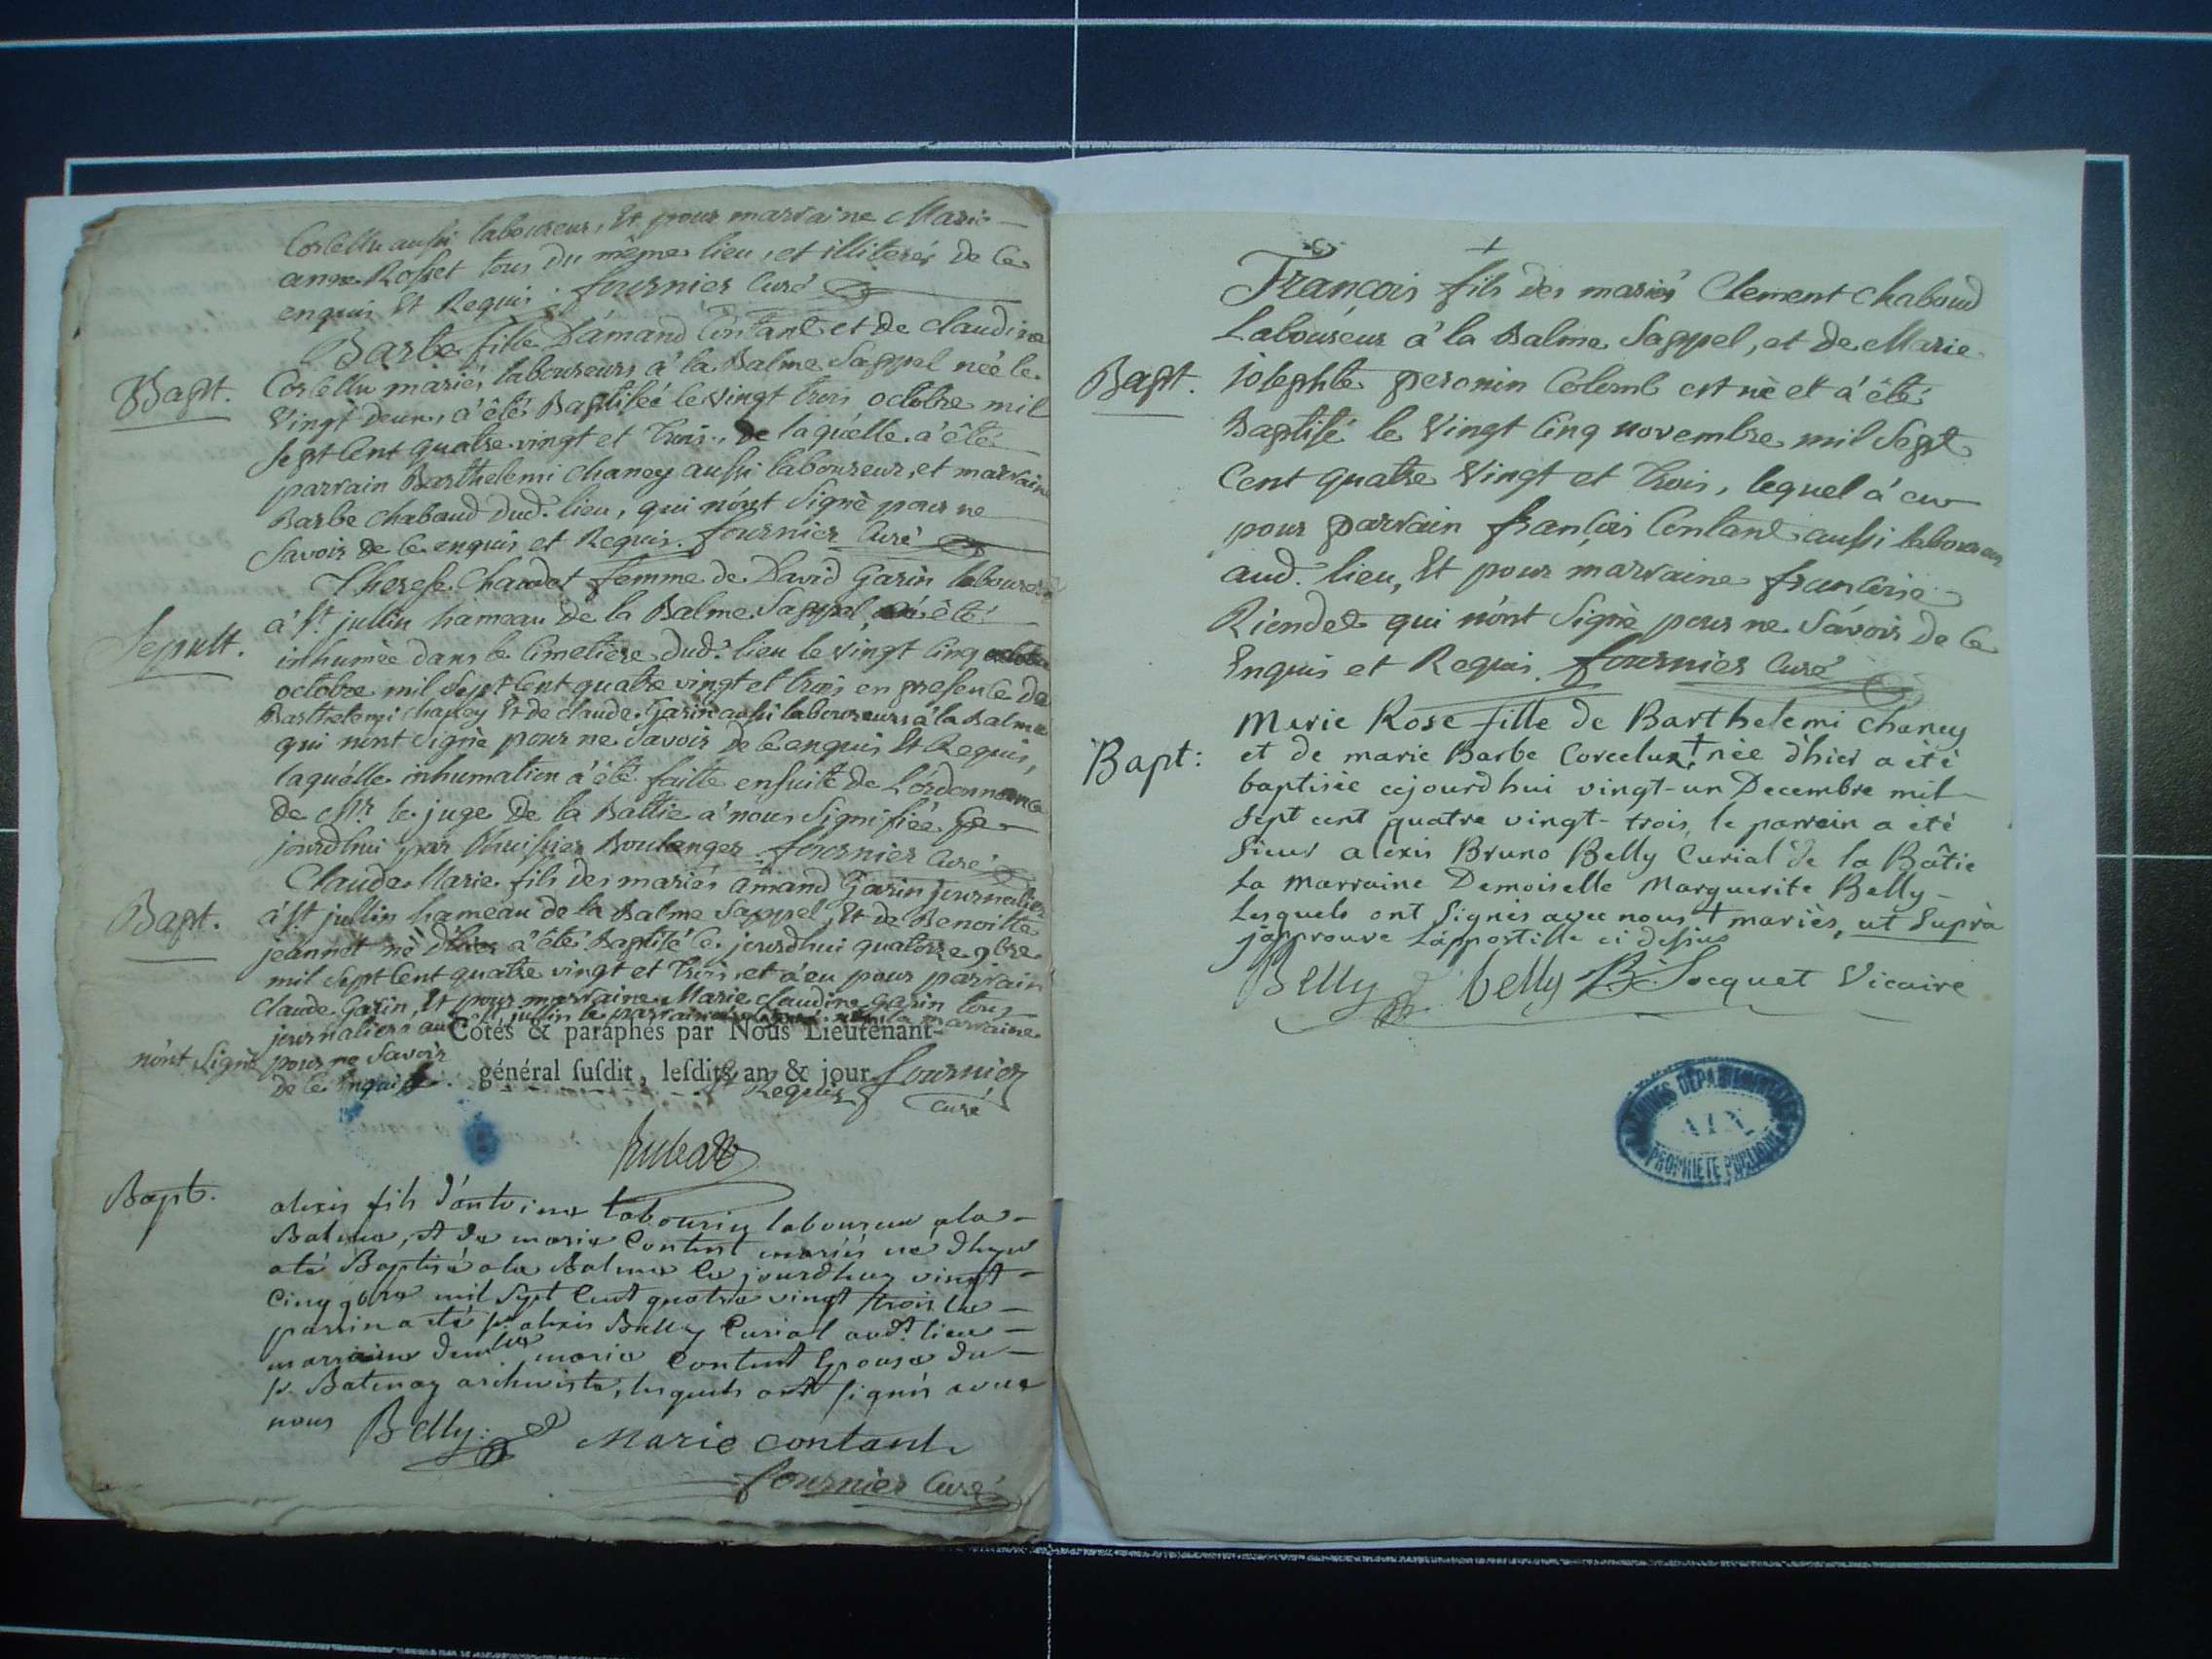 Corcellu aussi laboureur, Et pour marraine Marie
anne Rosset tous du même lieu, et illiterés de ce
enquis Et Requis. fournier Curé
Barbe fille D'amand Contant et de claudine
Bapt. Corcellu mariés laboureurs à la Balme Sappel née le
Vingt deux, a été Baptisée le vingt trois octobre mil
Sept Cent quatre vingt et trois, de laquelle a été
parrain Barthelemi Chaney aussi laboureur, et marraine
Barbe chabaud dud. lieu, qui n'ont Signé pour ne
Savoir de ce enquis et Requis. fournier Curé
Therese Chaudet femme de David Garin laboureur
à St. jullin hameau de la Balme Sappel, a été
Sepult. inhumée dans le Cimetiere dud. lieu le vingt Cinq
octobre mil Sept Cent quatre vingt et trois en presence de
Barthelemi chaney Et de claude Garin aussi laboureurs à la Balme
qui n'ont Signé pour ne Savoir de ce enquis Et Requis,
laquelle inhumation a été faitte ensuite de L'ordonnance
de Mr. le juge De la Battie a nous Signifiée ce
jourdhui par l'huissier Boulanger. fournier Curé
Claude Marie fils des mariés amand Garin journalier
Bapt. à St. jullin hameau de la Balme Sappel, Et de Benoitte
jeannet né d'hier a été Baptisé ce jourdhui quatorze 9bre
mil Sept Cent quatre vingt et trois et a eu pour parrain
Claude Garin, Et pour marraine Marie claudine Garin tous
journaliers au St. jullin le parrain la marraine
Cotés & paraphés par Nous Lieutenant-
n'ont Signé pour ne Savoir
général ſuſdit, leſdits an & jour.
de ce Enquis Et Requis fournier
curé
Bapt. alexis fils d'antoine tabourin laboureur a la
Balme, et de marie Contant mariés né d'hyer
a été Baptisé a la Balme ce jourdhuy vingt
Cinq 9bre mil Sept Cent quatre vingt trois le
parrin a été sr. alexis Belly Curial aud. lieu
marraine demlle marie Contant Epouse du
sr. Batenay archiviste, lesquels ont signés avec
nous Belly. Marie contant
fournier Curé
François fils des mariés Clement chaboud
Laboureur à la Balme Sappel, et de Marie
Bapt. iosephte peronin Colomb est né et a été
Baptisé le Vingt Cinq novembre mil Sept
Cent quatre Vingt et trois, lequel a eu
pour parrain françois Contant aussi laboureur
aud. lieu, Et pour marraine françoise
Riondet qui n'ont Signé pour ne Savoir de ce
Enquis et Requis. fournier Curé
Marie Rose fille de Barthelemi chaney
Bapt: et de marie Barbe Corcelux + née d'hier a été
baptisée cejourd'hui vingt-un Decembre mil
Sept cent quatre vingt-trois, le parrein a été
Sieur alexis Bruno Belly Curial de la Bâtie
La Marraine Demoiselle Marguerite Belly
Lesquels ont Signés avec nous + mariés, ut Suprà
j'approuve L'appostille ci dessus
Belly belly B. Socquet Vicaire
ARCHIVES DEPARTEMENTALES
AIN
PROPRIETE PUBLIQUE